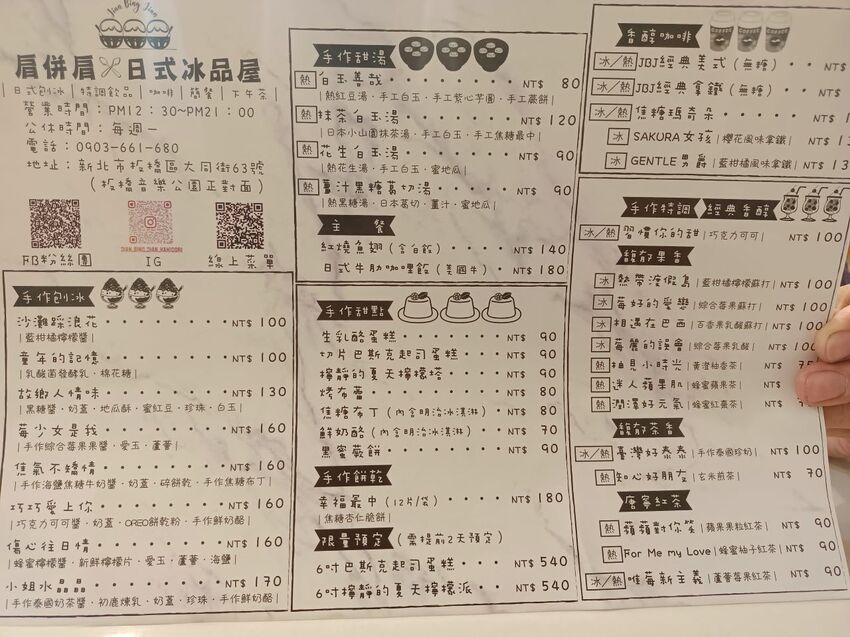 Jian Bing Jian
肩併肩日式冰品屋
|日式刨冰|特調飲品|咖啡|簡餐|下午茶|
營業時間：PM12：30~PM21：00
公休時間：每週一
電話：0903-661-680
地址：新北市板橋區大同街63號
(板橋音樂公園正對面)
JIAN.BING.JIAN.KAKIGORI
FB粉絲團 IG 線上菜單
手作刨冰
沙灘踩浪花 NT$ 100
|藍柑橘檸檬醬|
童年的記憶 NT$ 100
|乳酸菌發酵乳·棉花糖|
故鄉人情味 NT$ 130
|黑糖醬·奶蓋·地瓜酥·蜜紅豆·珍珠·白玉|
莓少女是我 NT$ 160
|手作綜合莓果果醬·愛玉·蘆薈|
焦氣不矯情 NT$ 160
|手作海鹽焦糖牛奶醬·奶蓋·碎餅乾·手作焦糖布丁|
巧巧愛上你 NT$ 160
|巧克力可可醬·奶蓋·OREO餅乾粉·手作鮮奶酪|
傷心往日情 NT$ 160
|蜂蜜檸檬醬·新鮮檸檬片·愛玉·蘆薈·海鹽|
小姐水晶晶 NT$ 170
|手作泰國奶茶醬·初鹿煉乳·奶蓋·珍珠·手作鮮奶酪|
手作甜湯
熱 白玉善哉 NT$ 80
|熱紅豆湯·手工白玉·手工紫心芋圓·手工蕨餅|
熱 抹茶白玉湯 NT$ 120
|日本小山園抹茶湯·手工白玉·手工焦糖最中|
熱 花生白玉湯 NT$ 90
|熱花生湯·手工白玉·蜜地瓜|
熱 薑汁黑糖葛切湯 NT$ 90
|熱黑糖湯·日本葛切·薑汁·蜜地瓜|
主餐
紅燒魚翅(含白飯) NT$ 140
日式牛肋咖哩飯(美國牛) NT$ 180
手作甜點
生乳酪蛋糕 NT$ 90
切片巴斯克起司蛋糕 NT$ 90
檸靜的夏天檸檬塔 NT$ 90
烤布蕾 NT$ 80
焦糖布丁(內含明治冰淇淋) NT$ 80
鮮奶酪(內含明治冰淇淋) NT$ 70
黑蜜蕨餅 NT$ 90
手作餅乾
幸福最中(12片/袋) NT$ 180
|焦糖杏仁脆餅|
限量預定(需提前2天預定)
6吋巴斯克起司蛋糕 NT$ 540
6吋檸靜的夏天檸檬派 NT$ 540
香醇咖啡
冰/熱 JBJ經典美式(無糖) NT$
冰/熱 JBJ經典拿鐵(無糖) NT$
冰/熱 焦糖瑪奇朵 NT$
冰 SAKURA女孩|櫻花風味拿鐵| NT$
冰 GENTLE男爵|藍柑橘風味拿鐵| NT$
手作特調 經典香醇
冰/熱 習慣你的甜|巧克力可可| NT$ 100
馥郁果香
冰 熱帶渡假島|藍柑橘檸檬蘇打| NT$ 100
冰 莓好的愛戀|綜合莓果蘇打| NT$ 100
冰 相遇在巴西|百香果乳酸蘇打| NT$ 100
冰 莓麗的誤會|綜合莓果乳酸| NT$ 100
熱 柚見小時光|黃澄柚香茶| NT$
熱 迷人蘋果肌|蜂蜜蘋果茶| NT$
熱 潤澤好元氣|蜂蜜紅棗茶| NT$
馥郁茶香
冰/熱 臺灣好泰泰|手作泰國珍奶| NT$ 100
冰/熱 知心好朋友|玄米煎茶| NT$ 70
唐寧紅茶
熱 蘋蘋對你笑|蘋果果粒紅茶| NT$ 90
熱 For Me my Love|蜂蜜柚子紅茶| NT$ 90
冰/熱 唯莓新主義|蘆薈莓果紅茶| NT$ 90